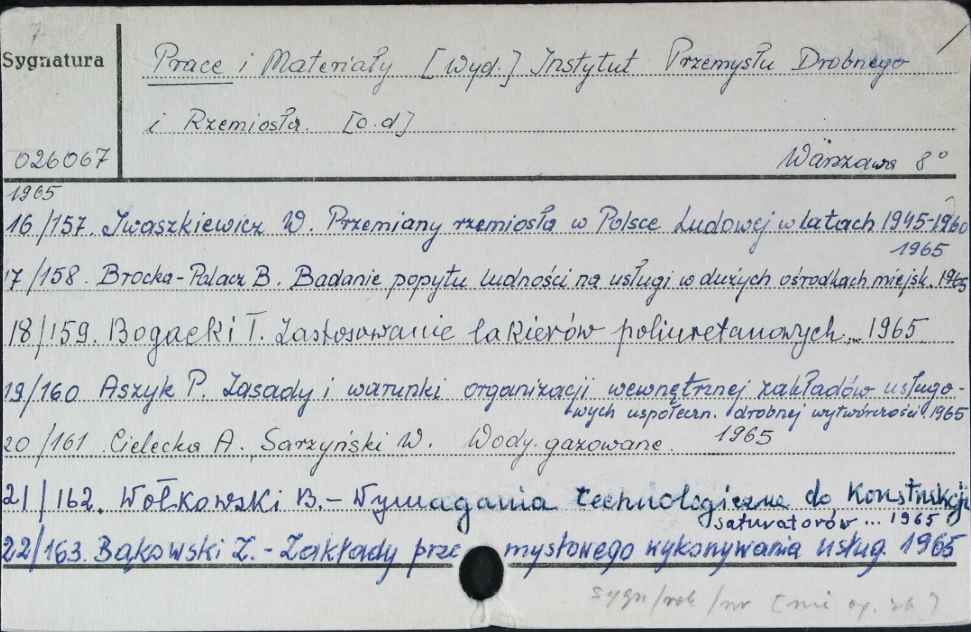 7
Sygnatura
Prace i Materiały [Wyd.] Instytut Przemysłu Drobnego
i Rzemiosła. [o.d]
026067
Warszawa 8°
1965
16/157. Iwaszkiewicz W. Przemiany rzemiosła w Polsce Ludowej w latach 1945-1960
1965
17/158. Brocka-Palacz B. Badanie popytu ludności na usługi w dużych ośrodkach miejsk. 1965
18/159. Bogacki T. Zastosowanie lakierów poliuretanowych... 1965
19/160 Aszyk P. Zasady i warunki organizacji wewnętrznej zakładów usługo-
wych uspołeczn. drobnej wytwórczości 1965
20/161. Cielecka A., Sarzyński W. Wody gazowane. 1965
21/162. Wołkowski B. - Wymagania technologiczne do konstrukcji
saturatorów ... 1965
22/163. Bąkowski Z. - Zakłady przemysłowego wykonywania usług. 1965
sygn/rok/nr